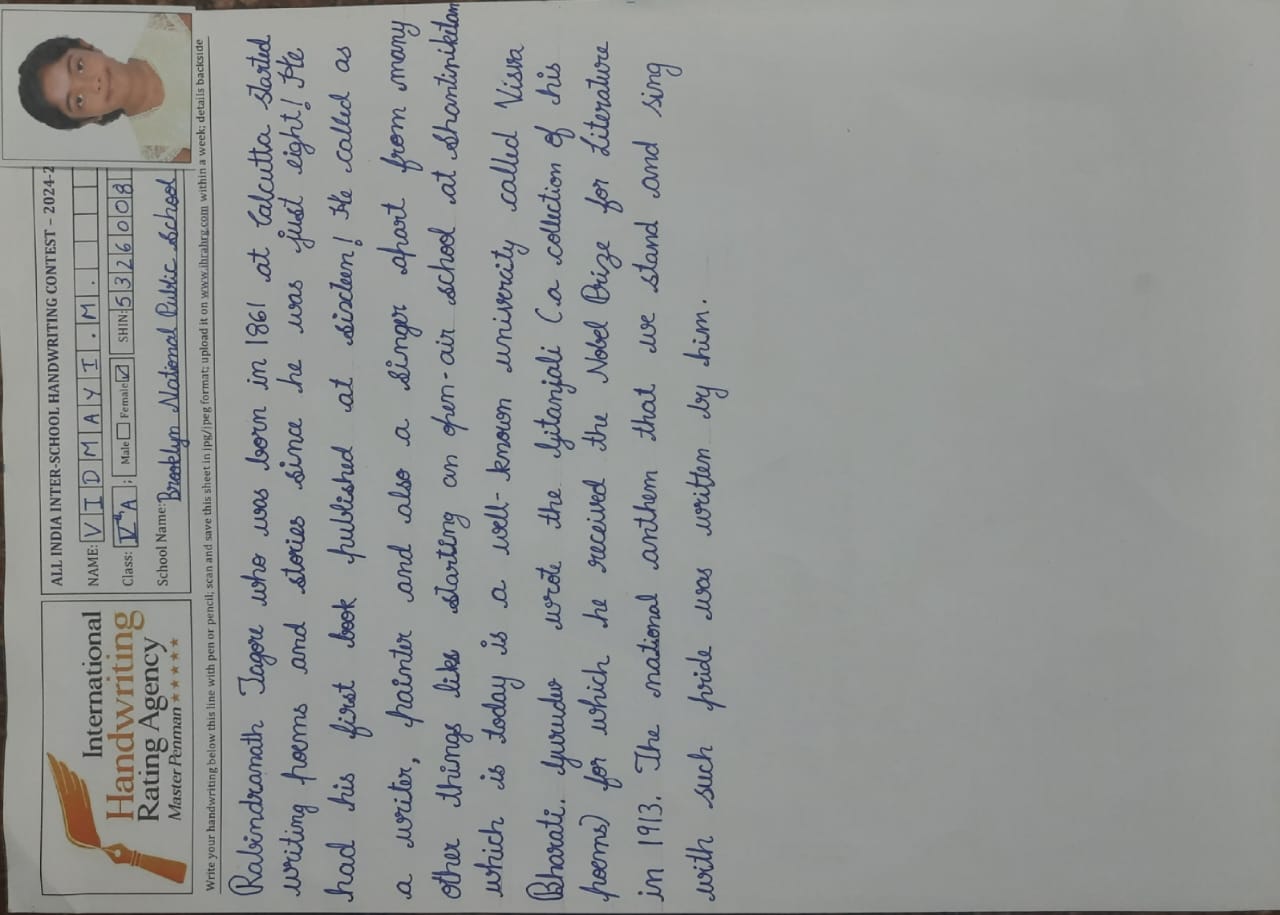 International
Handwriting
Rating Agency
Master Penman ★★★★★★
ALL INDIA INTER-SCHOOL HANDWRITING CONTEST – 2024-2
NAME: VIDMAYI.M.
Class: Vth A; Male Female ☑ SHIN: 5326008
School Name: Brooklyn National Public School
Write your handwriting below this line with pen or pencil; scan and save this sheet in jpg/jpeg format; upload it on www.ihrahrg.com within a week; details backside
Rabindranath Tagore who was born in 1861 at Calcutta started
writing poems and stories since he was just eight! He
had his first book published at sixteen! He called as
a writer, painter and also a singer apart from many
other things like starting an open-air school at Shantiniketan
which is today is a well-known univercity called Visva
Bharati. Gurudev wrote the Gitanjali (a collection of his
poems) for which he received the Nobel Prize for Literature
in 1913. The national anthem that we stand and sing
with such pride was written by him.